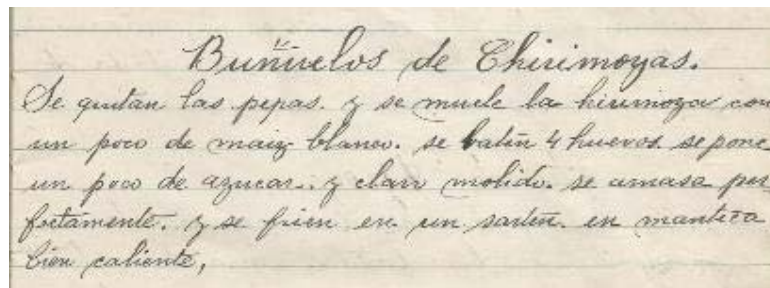 Buñuelos de Chirimoyas.
Se quitan las pepas. y se muele la hirimoya con
un poco de maiz blanco. se baten 4 huevos. se pone
un poco de azucar. y clavo molido. se amasa per
fectamente. y se frien en un sarten. en manteca
bien caliente,